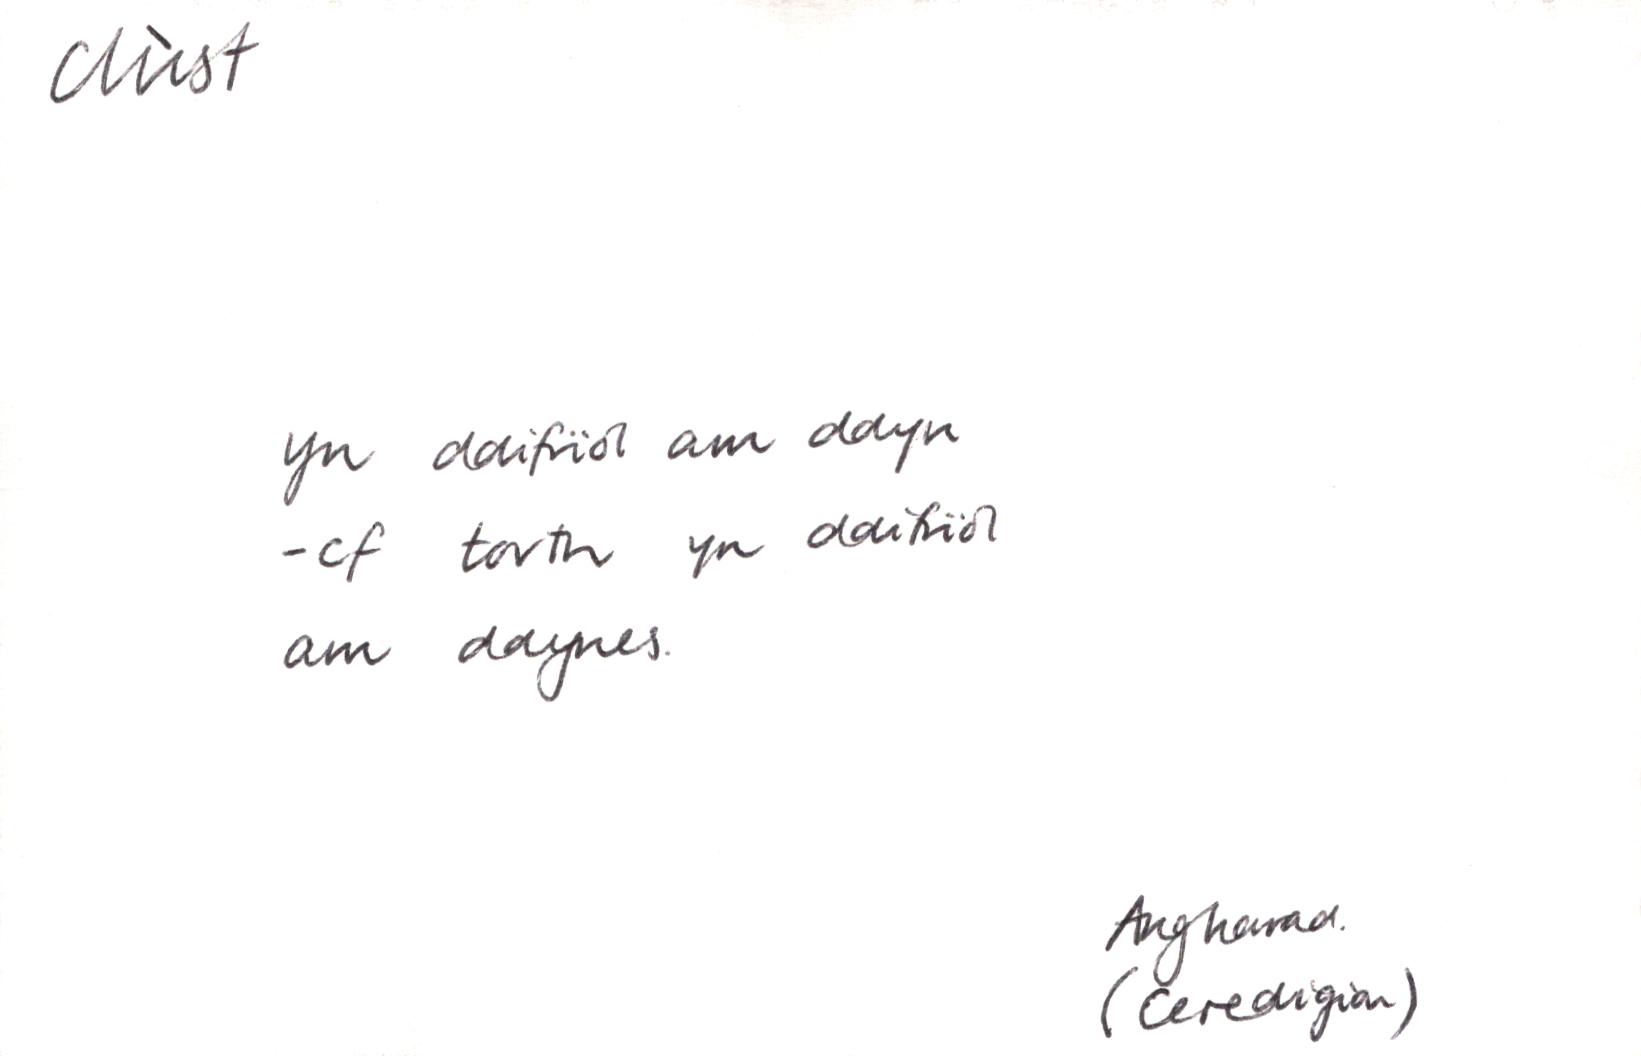 clùst
yn ddifrïol am ddyn
-cf torth yn ddifrïol
am ddynes.
Angharad.
(Ceredigion)